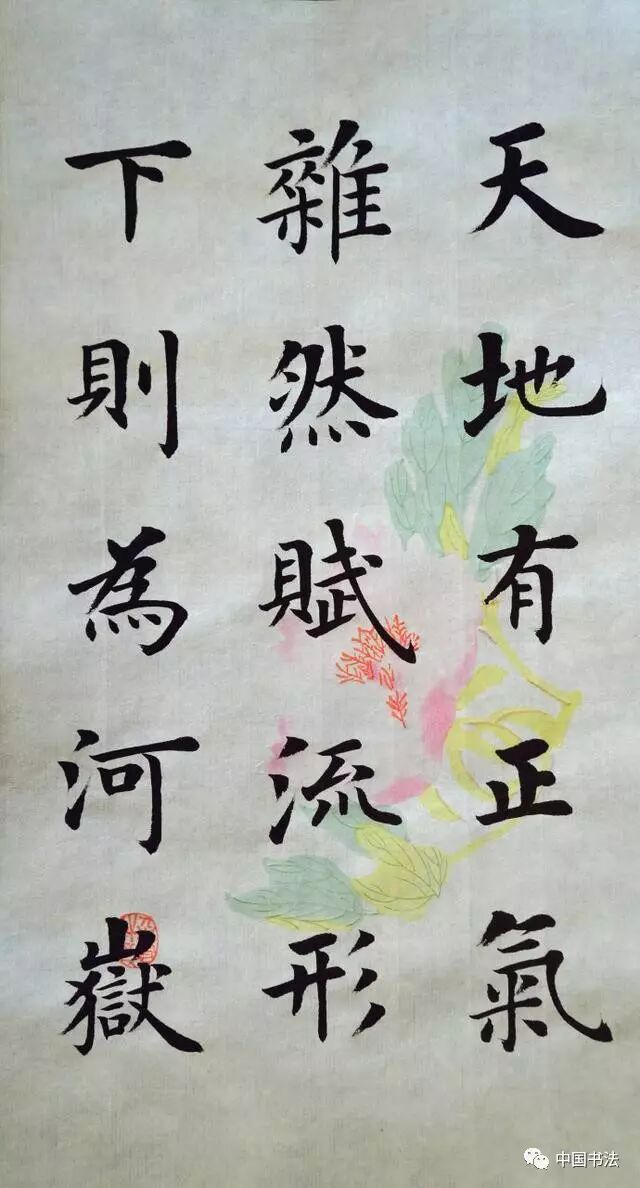 天地有正氣
雜然賦流形
下則為河嶽
中国书法